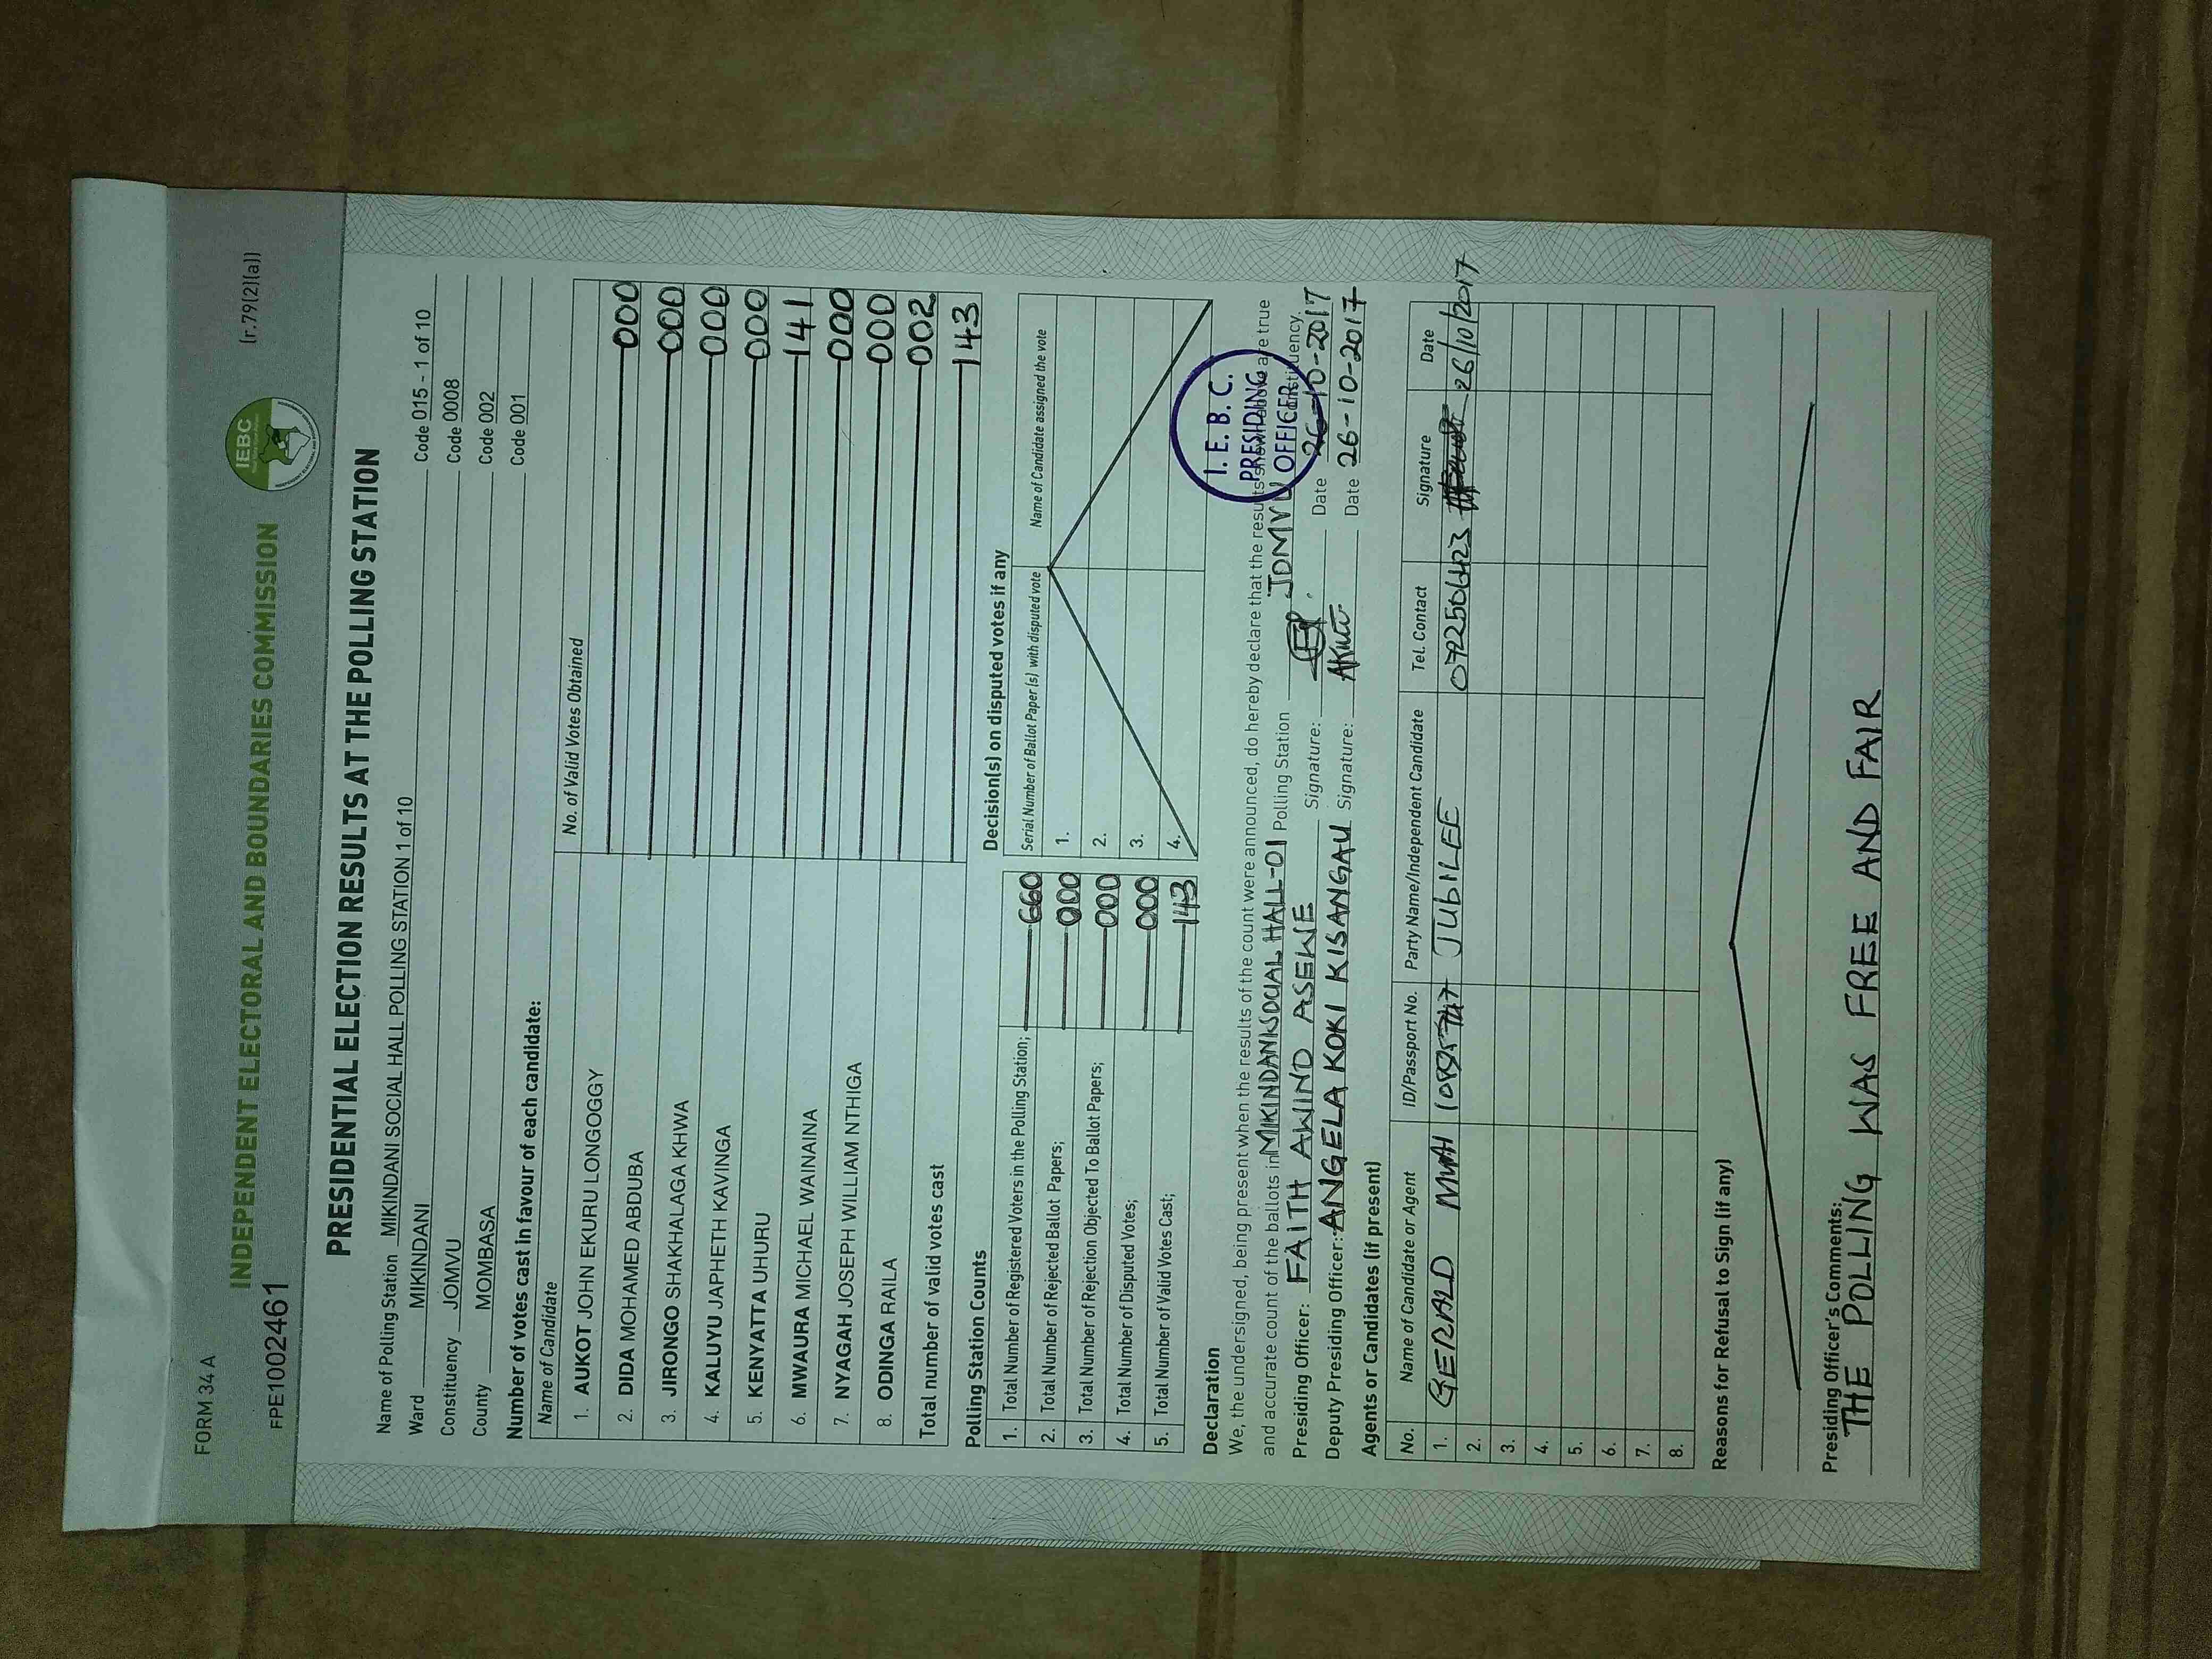 FORM 34 A
(r.79(2)(a))
INDEPENDENT ELECTORAL AND BOUNDARIES COMMISSION
IEBC
FPE1002461
PRESIDENTIAL ELECTION RESULTS AT THE POLLING STATION
Name of Polling Station MIKINDANI SOCIAL HALL POLLING STATION 1 of 10 Code 015 - 1 of 10
Ward MIKINDANI Code 0008
Constituency JOMVU Code 002
County MOMBASA Code 001
Number of votes cast in favour of each candidate:
Name of Candidate No. of Valid Votes Obtained
1. AUKOT JOHN EKURU LONGOGGY 000
2. DIDA MOHAMED ABDUBA 000
3. JIRONGO SHAKHALAGA KHWA 000
4. KALUYU JAPHETH KAVINGA 000
5. KENYATTA UHURU 141
6. MWAURA MICHAEL WAINAINA 000
7. NYAGAH JOSEPH WILLIAM NTHIGA 000
8. ODINGA RAILA 002
Total number of valid votes cast 143
Polling Station Counts
1. Total Number of Registered Voters in the Polling Station; 660
2. Total Number of Rejected Ballot Papers; 000
3. Total Number of Rejection Objected To Ballot Papers; 000
4. Total Number of Disputed Votes; 000
5. Total Number of Valid Votes Cast; 143
Decision(s) on disputed votes if any
Serial Number of Ballot Paper (s) with disputed vote Name of Candidate assigned the vote
1.
2.
3.
4.
Declaration
We, the undersigned, being present when the results of the count were announced, do hereby declare that the results shown above are true
and accurate count of the ballots in MIKINDANI SOCIAL HALL-01 Polling Station JOMVU Constituency.
I. E. B. C.
PRESIDING
OFFICER
Presiding Officer: FAITH AWINO ASEWE Signature: Date 26-10-2017
Deputy Presiding Officer: ANGELA KOKI KISANGAU Signature: Date 26-10-2017
Agents or Candidates (if present)
No. Name of Candidate or Agent ID/Passport No. Party Name/Independent Candidate Tel. Contact Signature Date
1. GERALD JUBILEE 0722506423 26/10/2017
2.
3.
4.
5.
6.
7.
8.
Reasons for Refusal to Sign (if any)
Presiding Officer's Comments:
THE POLLING WAS FREE AND FAIR